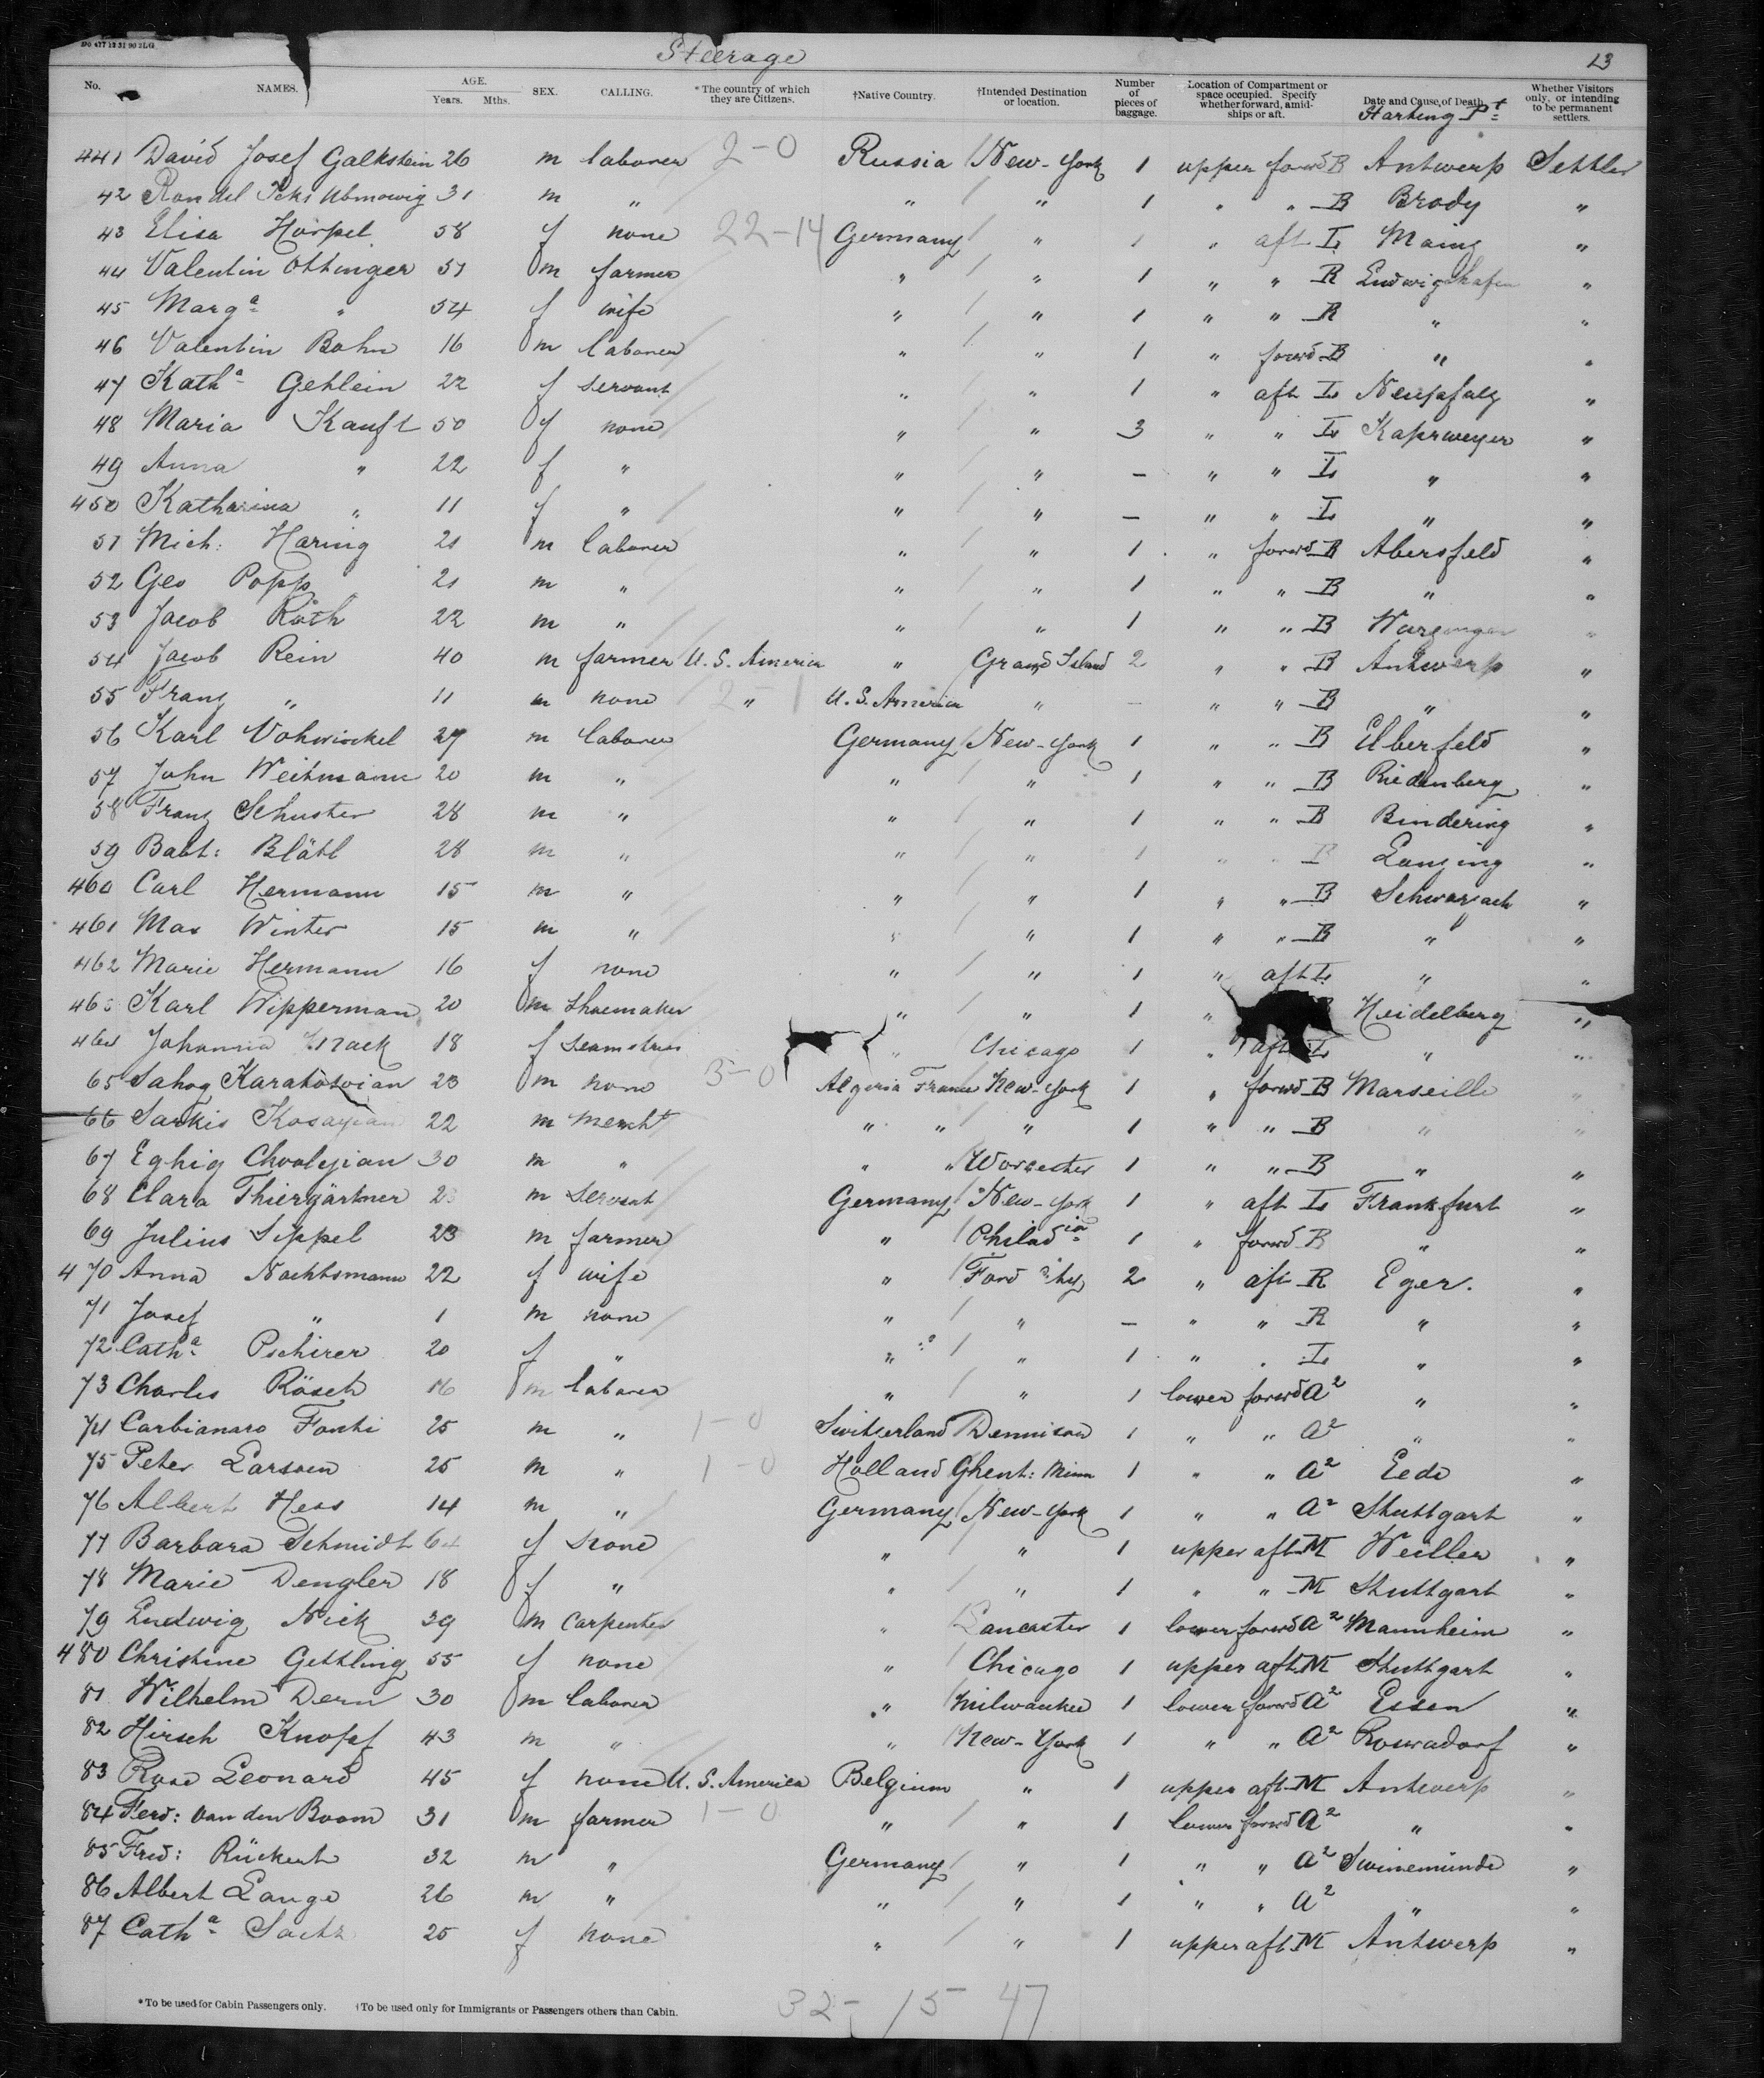 Steerage 13
No. NAMES. AGE. Years. Mths. SEX. CALLING. *The country of which they are Citizens. †Native Country. †Intended Destination or location. Number of pieces of baggage. Location of Compartment or space occupied. Specify whether forward, amidships or aft. Date and Cause of Death Starting Pt Whether Visitors only, or intending to be permanent settlers.
441 David Josef Galkstein 26 m laborer 2-0 Russia New-York 1 upper forwd B Antwerp Settler
42 31 m " " " 1 " " B Brody "
43 Elisa Horpel 58 f none 22-14 Germany " 1 " aft L Mainz "
44 Valentin Ottinger 51 m farmer " " 1 " " R Ludwigshafen "
45 Marga " 54 f wife " " 1 " " R " "
46 Valentin Bohn 16 m laborer " " 1 " forwd B " "
47 Katha Gehlein 22 f servant " " 1 " aft L "
48 Maria Kauft 50 f none " " 3 " " L Kapsweyer "
49 Anna " 22 f " " " - " " L " "
450 Katharina " 11 f " " " - " " L " "
51 Mich: Haring 21 m laborer " " 1 " forwd B Abersfeld "
52 Geo Popp 21 m " " " 1 " " B " "
53 Jacob Roth 22 m " " " 1 " " B "
54 Jacob Rein 40 m farmer U.S. America " Grand Island 2 " " B Antwerp "
55 Franz " 11 m none " 2-1 U.S. America " - " " B " "
56 Karl Vohwinkel 29 m laborer Germany New-York 1 " " B Elberfeld "
57 John Weitmann 20 m " " " 1 " " B Riedenberg "
58 Franz Schuster 28 m " " " 1 " " B Bindering "
59 Babt: Blätl 28 m " " " 1 " " B Lanzing "
460 Carl Hermann 15 m " " " 1 " " B Schwarzach "
461 Max Winter 15 m " " " 1 " " B " "
462 Marie Hermann 16 f none " " 1 " aft L " "
463 Karl Wipperman 20 m Shoemaker " " 1 " Heidelberg "
464 Johanna 18 f Seamstress " Chicago 1 " aft L " "
65 Sahog Karakosoian 23 m none 3-0 Algeria France New-York 1 " forwd B Marseille "
66 Sarkis Kosayian 22 m mercht " " " 1 " " B " "
67 Eghig Choolejian 30 m " " " Worcester 1 " " B " "
68 Clara Thiergärtner 23 m Servant Germany New-York 1 " aft L Frankfurt "
69 Julius Sippel 23 m farmer " Philadia 1 " forwd B " "
470 Anna Nachtsmann 22 f wife " Ford City 2 " aft R Eger. "
71 Josef " 1 m none " " - " " R " "
72 Catha Pschirer 20 f " " " 1 " " L " "
73 Charles Rösch 16 m laborer " " 1 lower forwd A2 " "
74 Carbianaro Fonti 25 m " 1-0 Switzerland Dennison 1 " " A2 " "
75 Peter Larsoen 25 m " 1-0 Holland Ghent: Minn 1 " " A2 Eede "
76 Albert Hess 14 m " Germany New-York 1 " " A2 Stuttgart "
77 Barbara Schmidt 64 f none " " 1 upper aft M Weiller "
78 Marie Dengler 18 f " " " 1 " " M Stuttgart "
79 Ludwig Nick 39 m Carpenter " Lancaster 1 lower forwd A2 Mannheim "
480 Christine Gettling 55 f none " Chicago 1 upper aft M Stuttgart "
81 Wilhelm Dern 30 m laborer " Milwaukee 1 lower forwd A2 Essen "
82 Hirsch Knopf 43 m " " New-York 1 " " A2 "
83 Rose Leonard 45 f none U.S. America Belgium " 1 upper aft M Antwerp "
84 Ferd: van den Boom 31 m farmer 1-0 " " 1 lower forwd A2 " "
85 Fred: Rückert 32 m " Germany " 1 " " A2 Swinemünde "
86 Albert Lange 26 m " " " 1 " " A2 " "
87 Catha 25 f none " " 1 upper aft M Antwerp "
*To be used for Cabin Passengers only. †To be used only for Immigrants or Passengers others than Cabin.
32-15 47